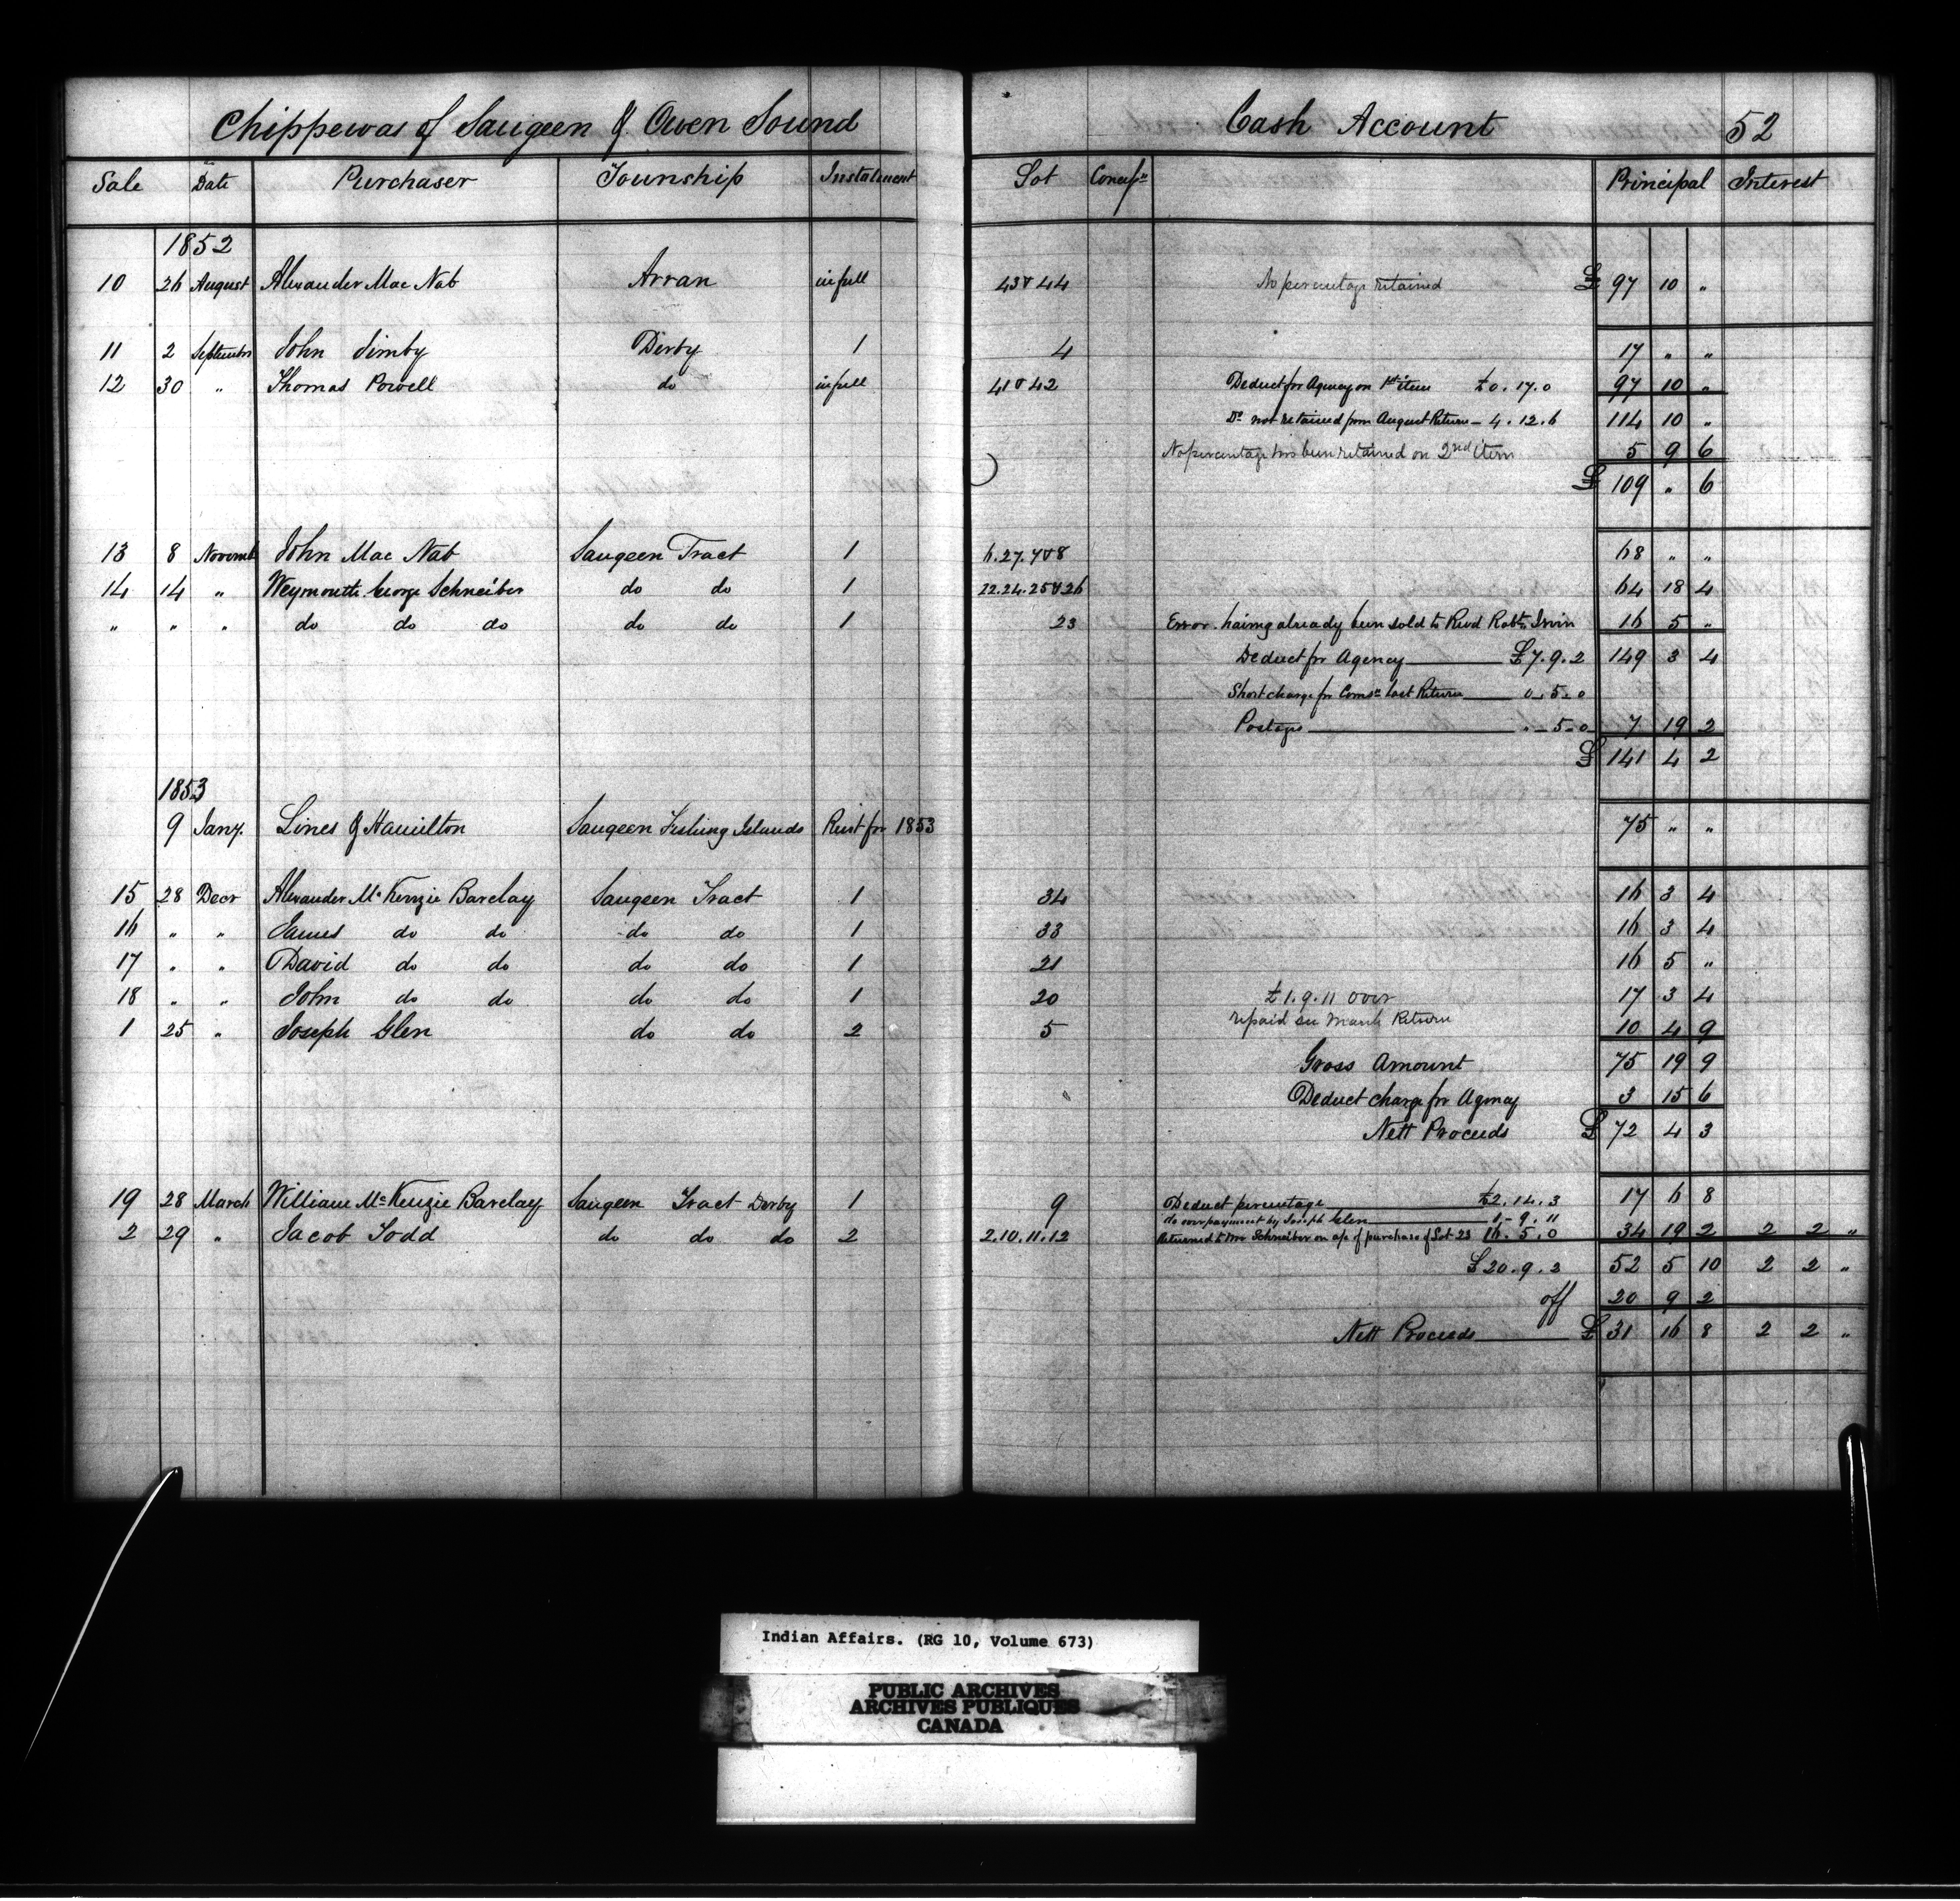 Chippewas of Saugeen & Owen Sound Cash Account 52
Sale Date Purchaser Township Instalment Lot Concessn Principal Interest
1852
10 26 August Alexander Mac Nab Arran in full 43 & 44 No percentage retained £ 97 10 "
11 2 September John Simby Derby 1 4 17 " "
12 30 " Thomas Powell do in full 41 & 42 Deduct for Agency on 1st item £0.17.0 97 10 "
Do not retained from August Return - 4.12.6 114 10 "
No percentage has been retained on 2nd item 5 9 6
£ 109 " 6
13 8 Novemb John Mac Nab Saugeen Tract 1 6.27.7 & 8 68 " "
14 14 " Weymouth George Schneiber do do 1 22.24.25 & 26 64 18 4
" " " do do do do do 1 23 Error. having already been sold to Revd Robt. Irvin 16 5 "
Deduct for Agency £7.9.2 149 3 4
Short charge for Comsn last Return 0-5-0
Postage "-5-0 7 19 2
£ 141 4 2
1853
9 Jany. Lines & Hamilton Saugeen Fishing Islands Rent for 1853 75 " "
15 28 Decr Alexander Mc Kenzie Barclay Saugeen Tract 1 34 16 3 4
16 " " James do do do do 1 33 16 3 4
17 " " David do do do do 1 21 16 5 "
18 " " John do do do do 1 20 £1.9.11 over 17 3 4
repaid see March Return
1 25 " Joseph Glen do do 2 5 10 4 9
Gross Amount 75 19 9
Deduct charge for Agency 3 15 6
Nett Proceeds £ 72 4 3
19 28 March William Mc Kenzie Barclay Saugeen Tract Derby 1 9 Deduct percentage £2.14.3 17 6 8
do overpayment by Joseph Glen 1-9.11
2 29 " Jacob Todd do do do 2 2.10.11.12 Returned to Mr Schneiber on a/c of purchase of Lot 23 16.5.0 34 19 2 2 2 "
£20.9.2 52 5 10 2 2 "
off 20 9 2
Nett Proceeds £ 31 16 8 2 2 "
Indian Affairs. (RG 10, Volume 673)
PUBLIC ARCHIVES
ARCHIVES PUBLIQUES
CANADA